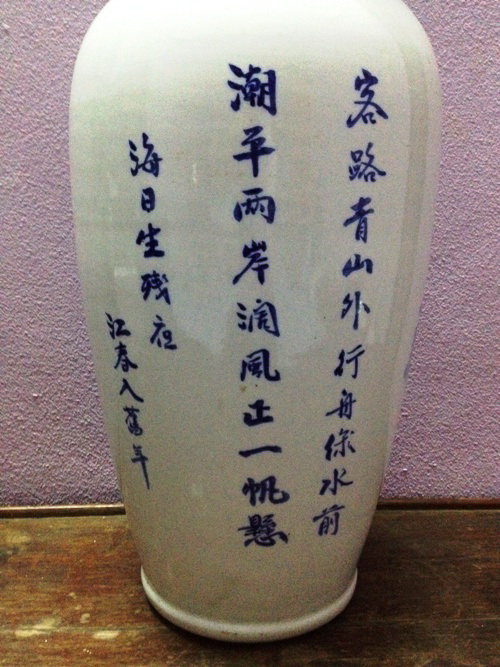 客路青山外行舟绿水前
潮平兩岸濶風正一帆懸
海日生残夜
江春入舊年